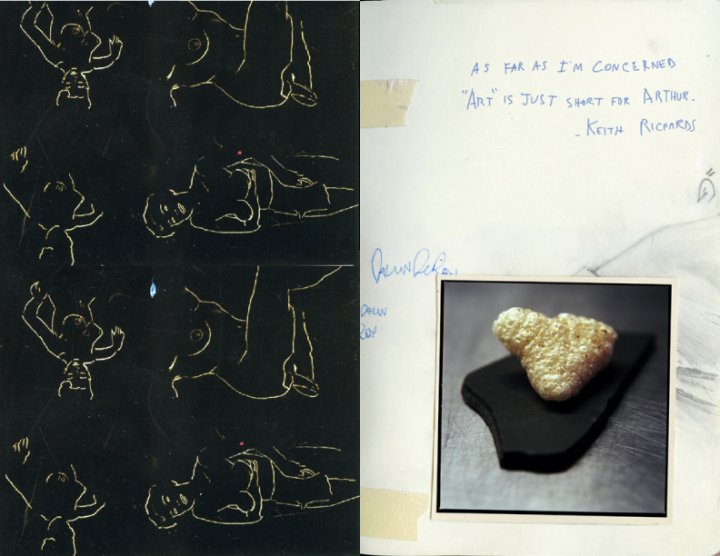 AS FAR AS I'M CONCERNED
"ART" IS JUST SHORT FOR ARTHUR.
- KEITH RICHARDS